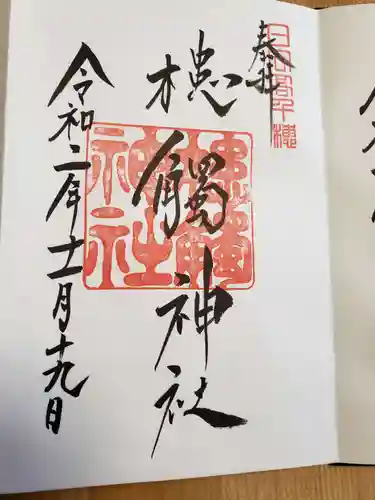 奉拝
日向高千穂
槵觸神社
槵觸神社
令和二年十一月十九日